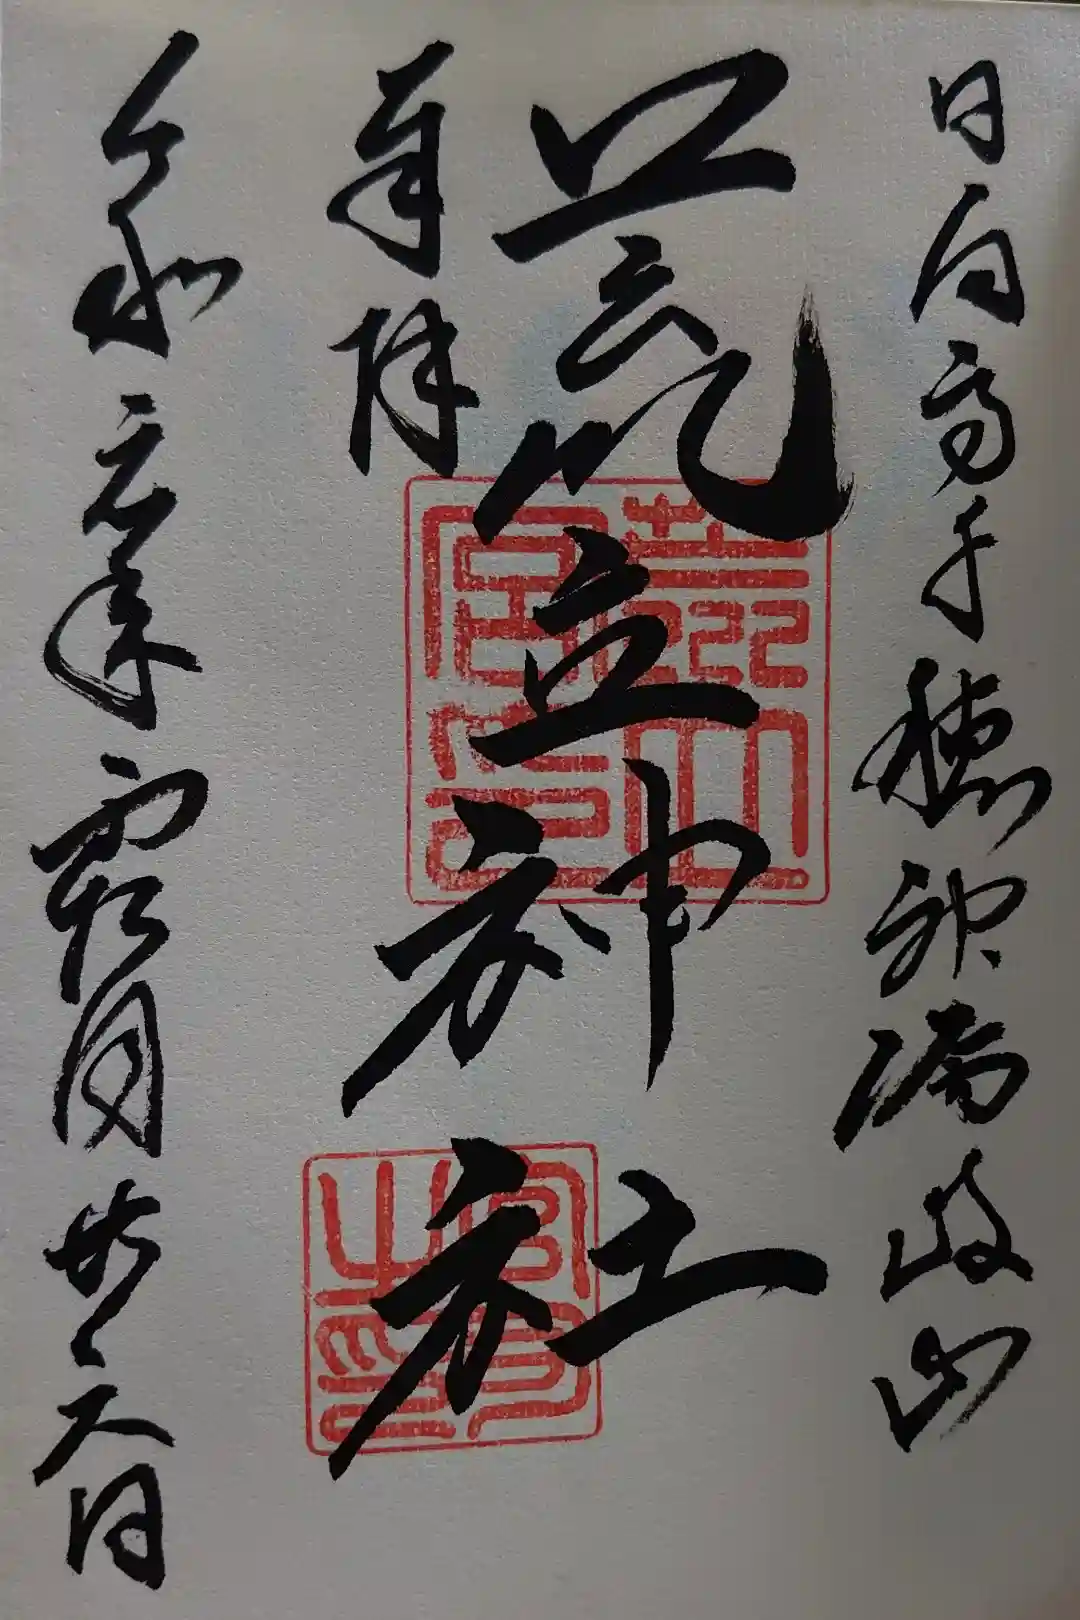 日向高千穂神漏岐山
荒立神社
奉拝
令和元年霜月廿六日